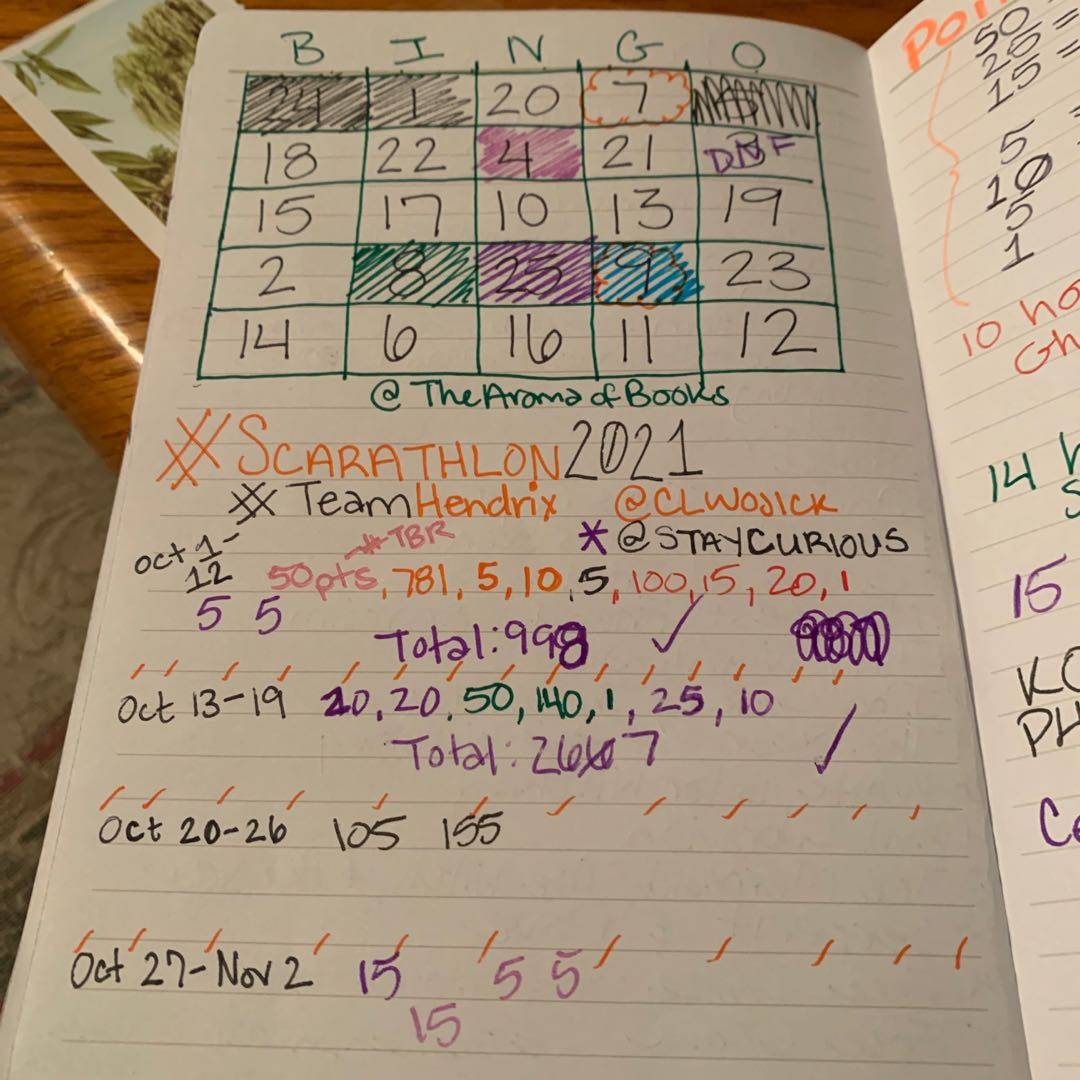 B I N G O
24 1 20 7
18 22 4 21 DNF
15 17 10 13 19
2 8 25 9 23
14 6 16 11 12
@TheAromaofBooks
#SCARATHLON2021
#TeamHendrix @CLWOJICK
#TBR *@STAYCURIOUS
Oct 1-
12 50pts, 781, 5, 10, 5, 100, 15, 20, 1
5 5
Total: 998 ✓
Oct 13-19 20, 20, 50, 140, 1, 25, 10
Total: 2667 ✓
Oct 20-26 105 155
Oct 27-Nov 2 15 5 5
15
50 =
20 =
15 =
5
10
5
1
10
14
15